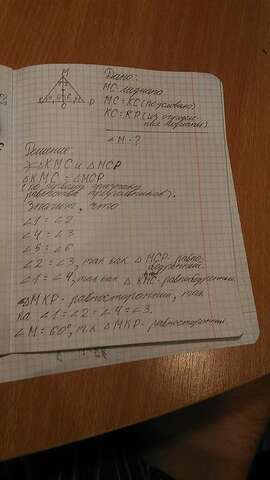 M
K
C
P
Дано:
MC-медиана
MC=KC(по условию)
KC=KP(из определения медианы)
∠M-?
Решение:
△KMC и △MCP
△KMC=△MCP
(по первому признаку
равенства треугольников).
Значит, что
∠1=∠2
∠4=∠3
∠5=∠6
∠2=∠3, так как △MCP-равнобедренный.
∠1=∠4, так как △KMC-равнобедренный.
△MKP-равносторонний, так
ка ∠1=∠2=∠4=∠3.
∠M=60°, т.к △MKP-равносторонн.